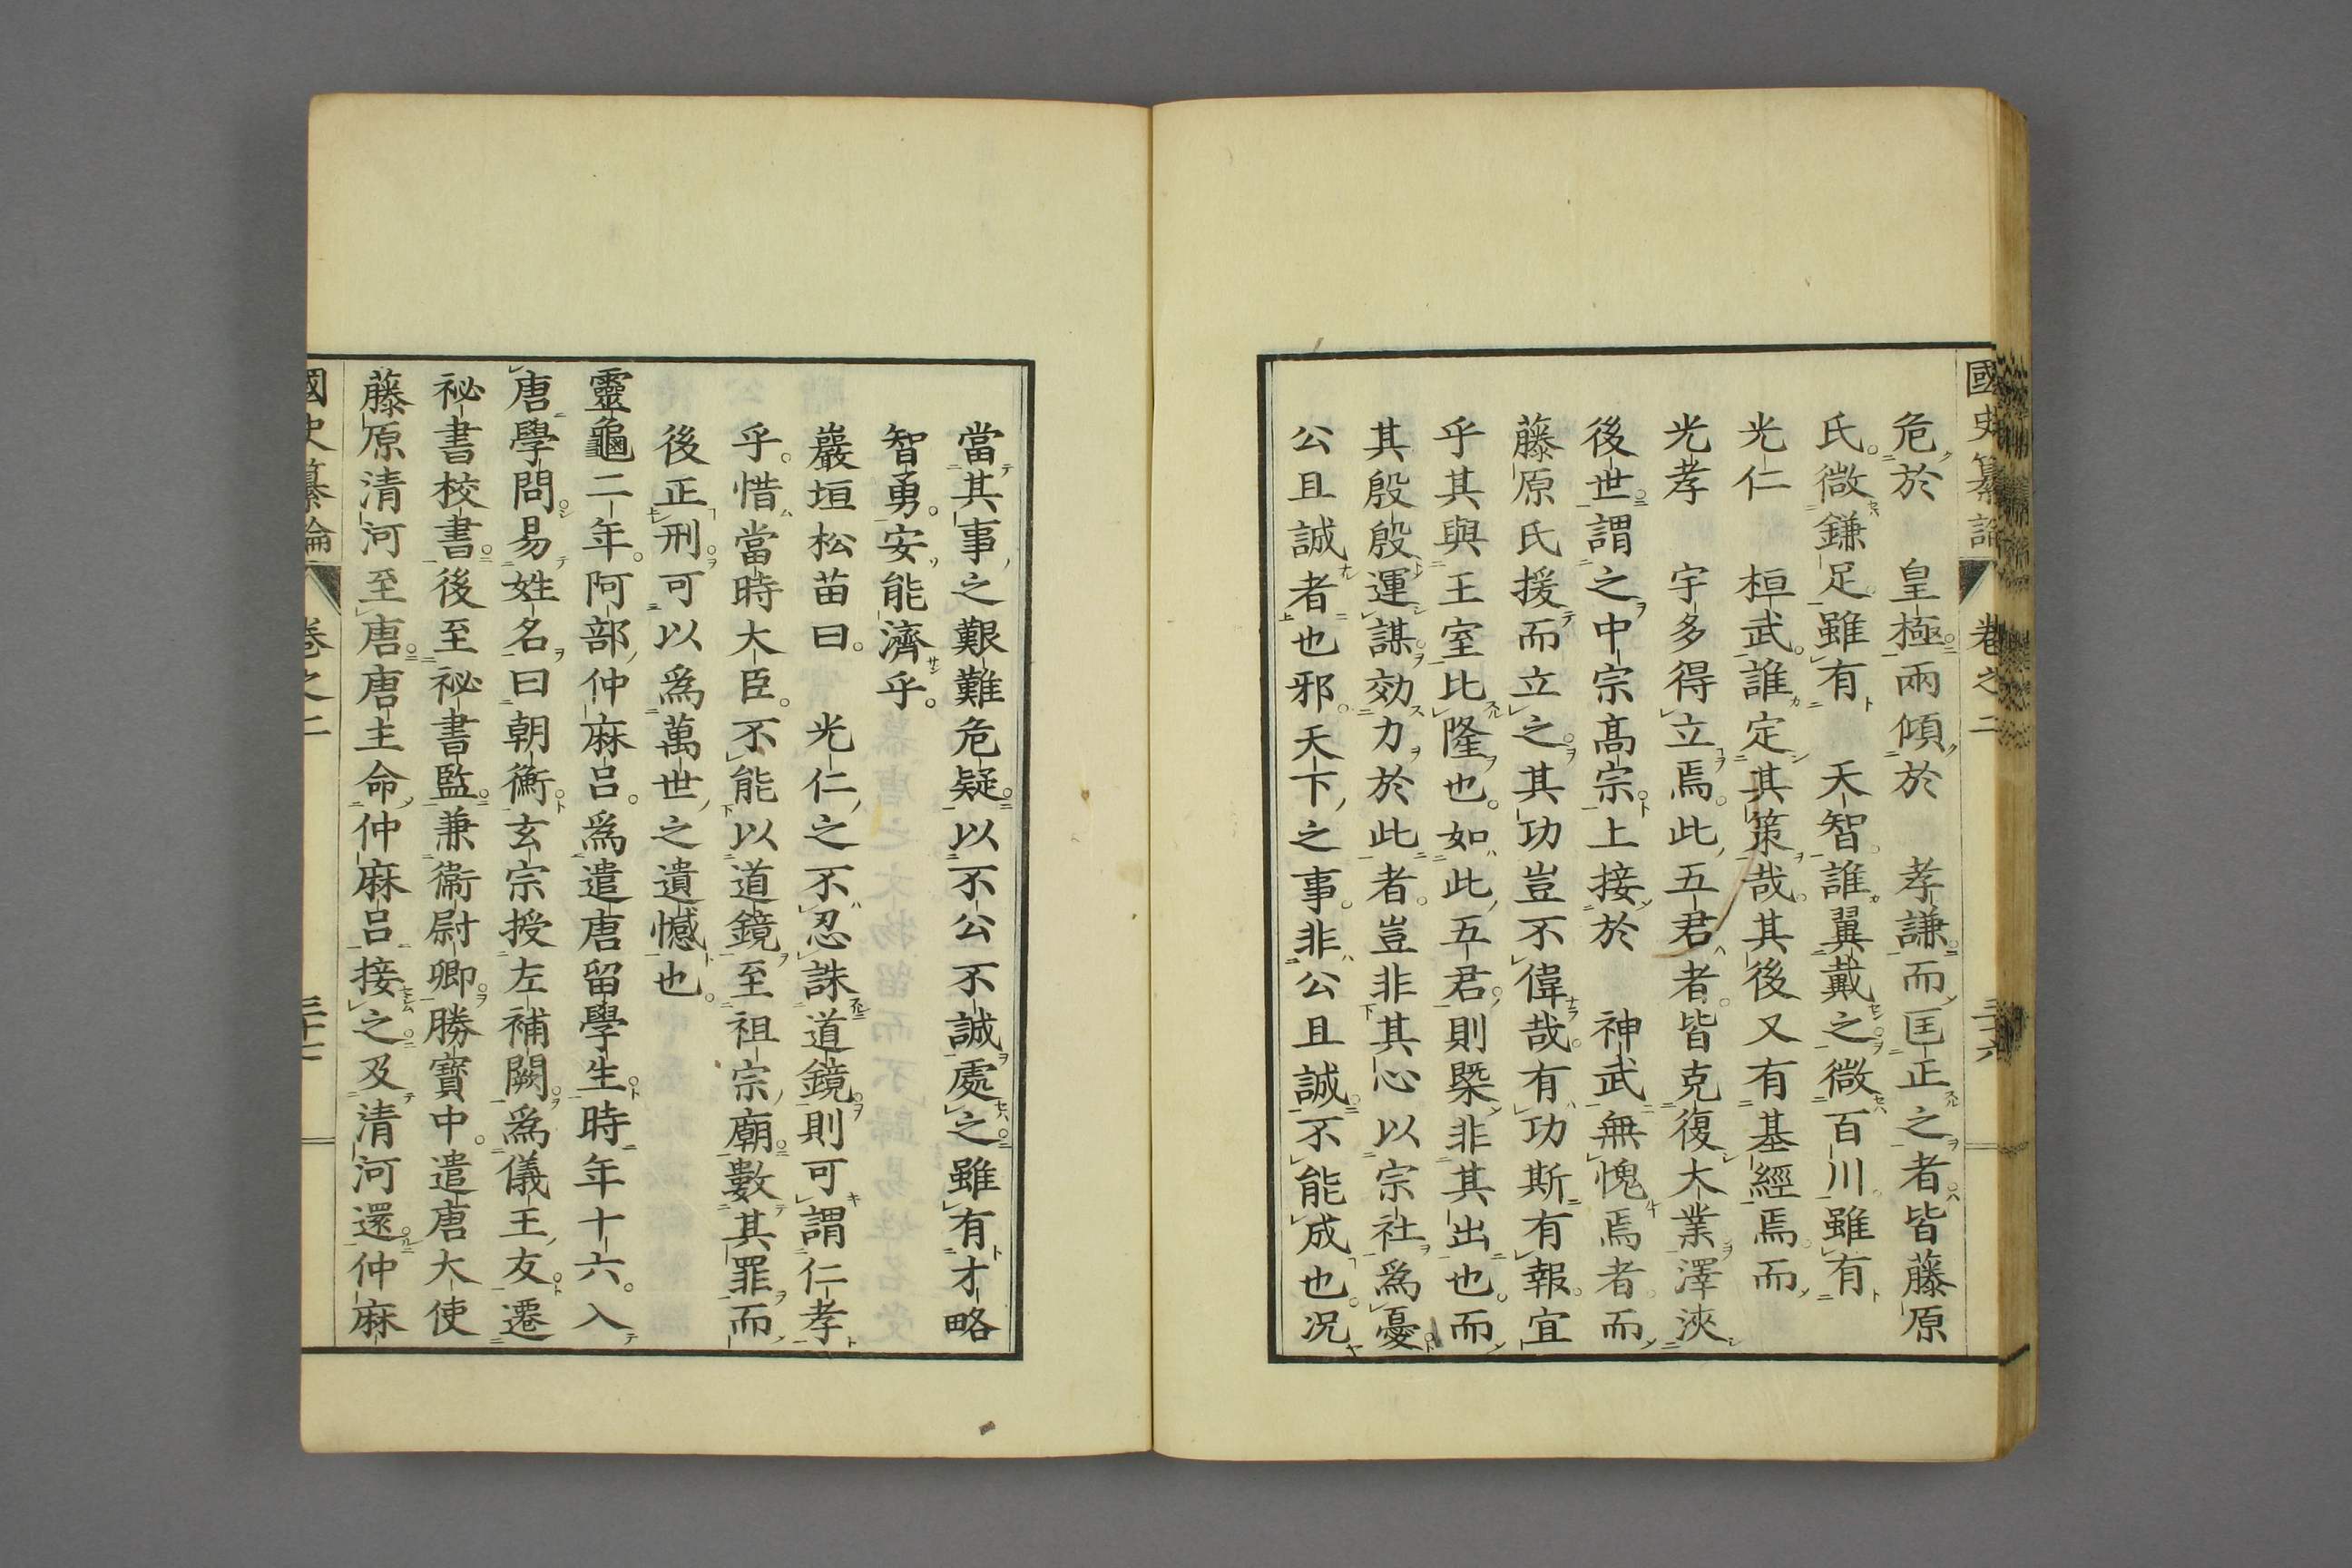 國史纂論 卷之二 三十六
危於 皇極兩傾於 孝謙而匡正之者皆藤原
氏微鎌足雖有 天智誰翼戴之微百川雖有
光仁 桓武誰定其策哉其後又有基經焉而
光孝 宇多得立焉此五君者皆克復大業澤浹
後世謂之中宗髙宗上接於 神武無愧焉者而
藤原氏援而立之其功豈不偉哉有功斯有報宜
乎其與王室比隆也如此五君則槩非其出也而
其殷殷運謀効力於此者豈非其心以宗社為憂
公且誠者也邪天下之事非公且誠不能成也况
當其事之艱難危疑以不公不誠處之雖有才略
智勇安能濟乎
巖垣松苗曰 光仁之不忍誅道鏡則可謂仁孝
乎惜當時大臣不能以道鏡至祖宗廟數其罪而
後正刑可以爲萬世之遺憾也
靈龜二年阿部仲麻呂爲遣唐留學生時年十六入
唐學問易姓名曰朝衡玄宗授左補闕爲儀王友遷
祕書校書後至祕書監兼衞尉卿勝寶中遣唐大使
藤原清河至唐唐主命仲麻呂接之及清河還仲麻
國史纂論 卷之二 三十七